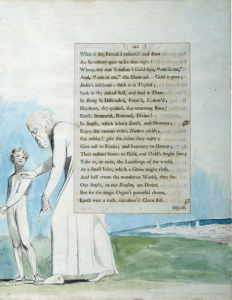 What if thy Rental I reform? and draw
An Inventory new to set thee right?
Where, thy true Treasure? Gold says, "not in me,"
And, "not in me," the Diamond. Gold is poor;
India's insolvent: Seek it in Thyself;
Seek in thy naked Self, and find it There:
In Being so Descended, Form'd, Endow'd;
Sky-born, sky-guided, sky-returning Race!
Erect, Immortal, Rational, Divine!
In Senses, which Inherit Earth, and Heavens;
Enjoy the various riches Nature yields;
Far nobler! give the riches they enjoy;
Give tast to Fruits; and harmony to Groves;
Their radiant beams to Gold, and Gold's bright Sire;
Take in, at once, the Landscape of the world,
At a small Inlet, which a Grain might close,
And half create the wondrous World, they see.
Our Senses, as our Reason, are Divine.
But for the magic Organ's powerful charm,
Earth were a rude, uncolour'd Chaos still.
Objects